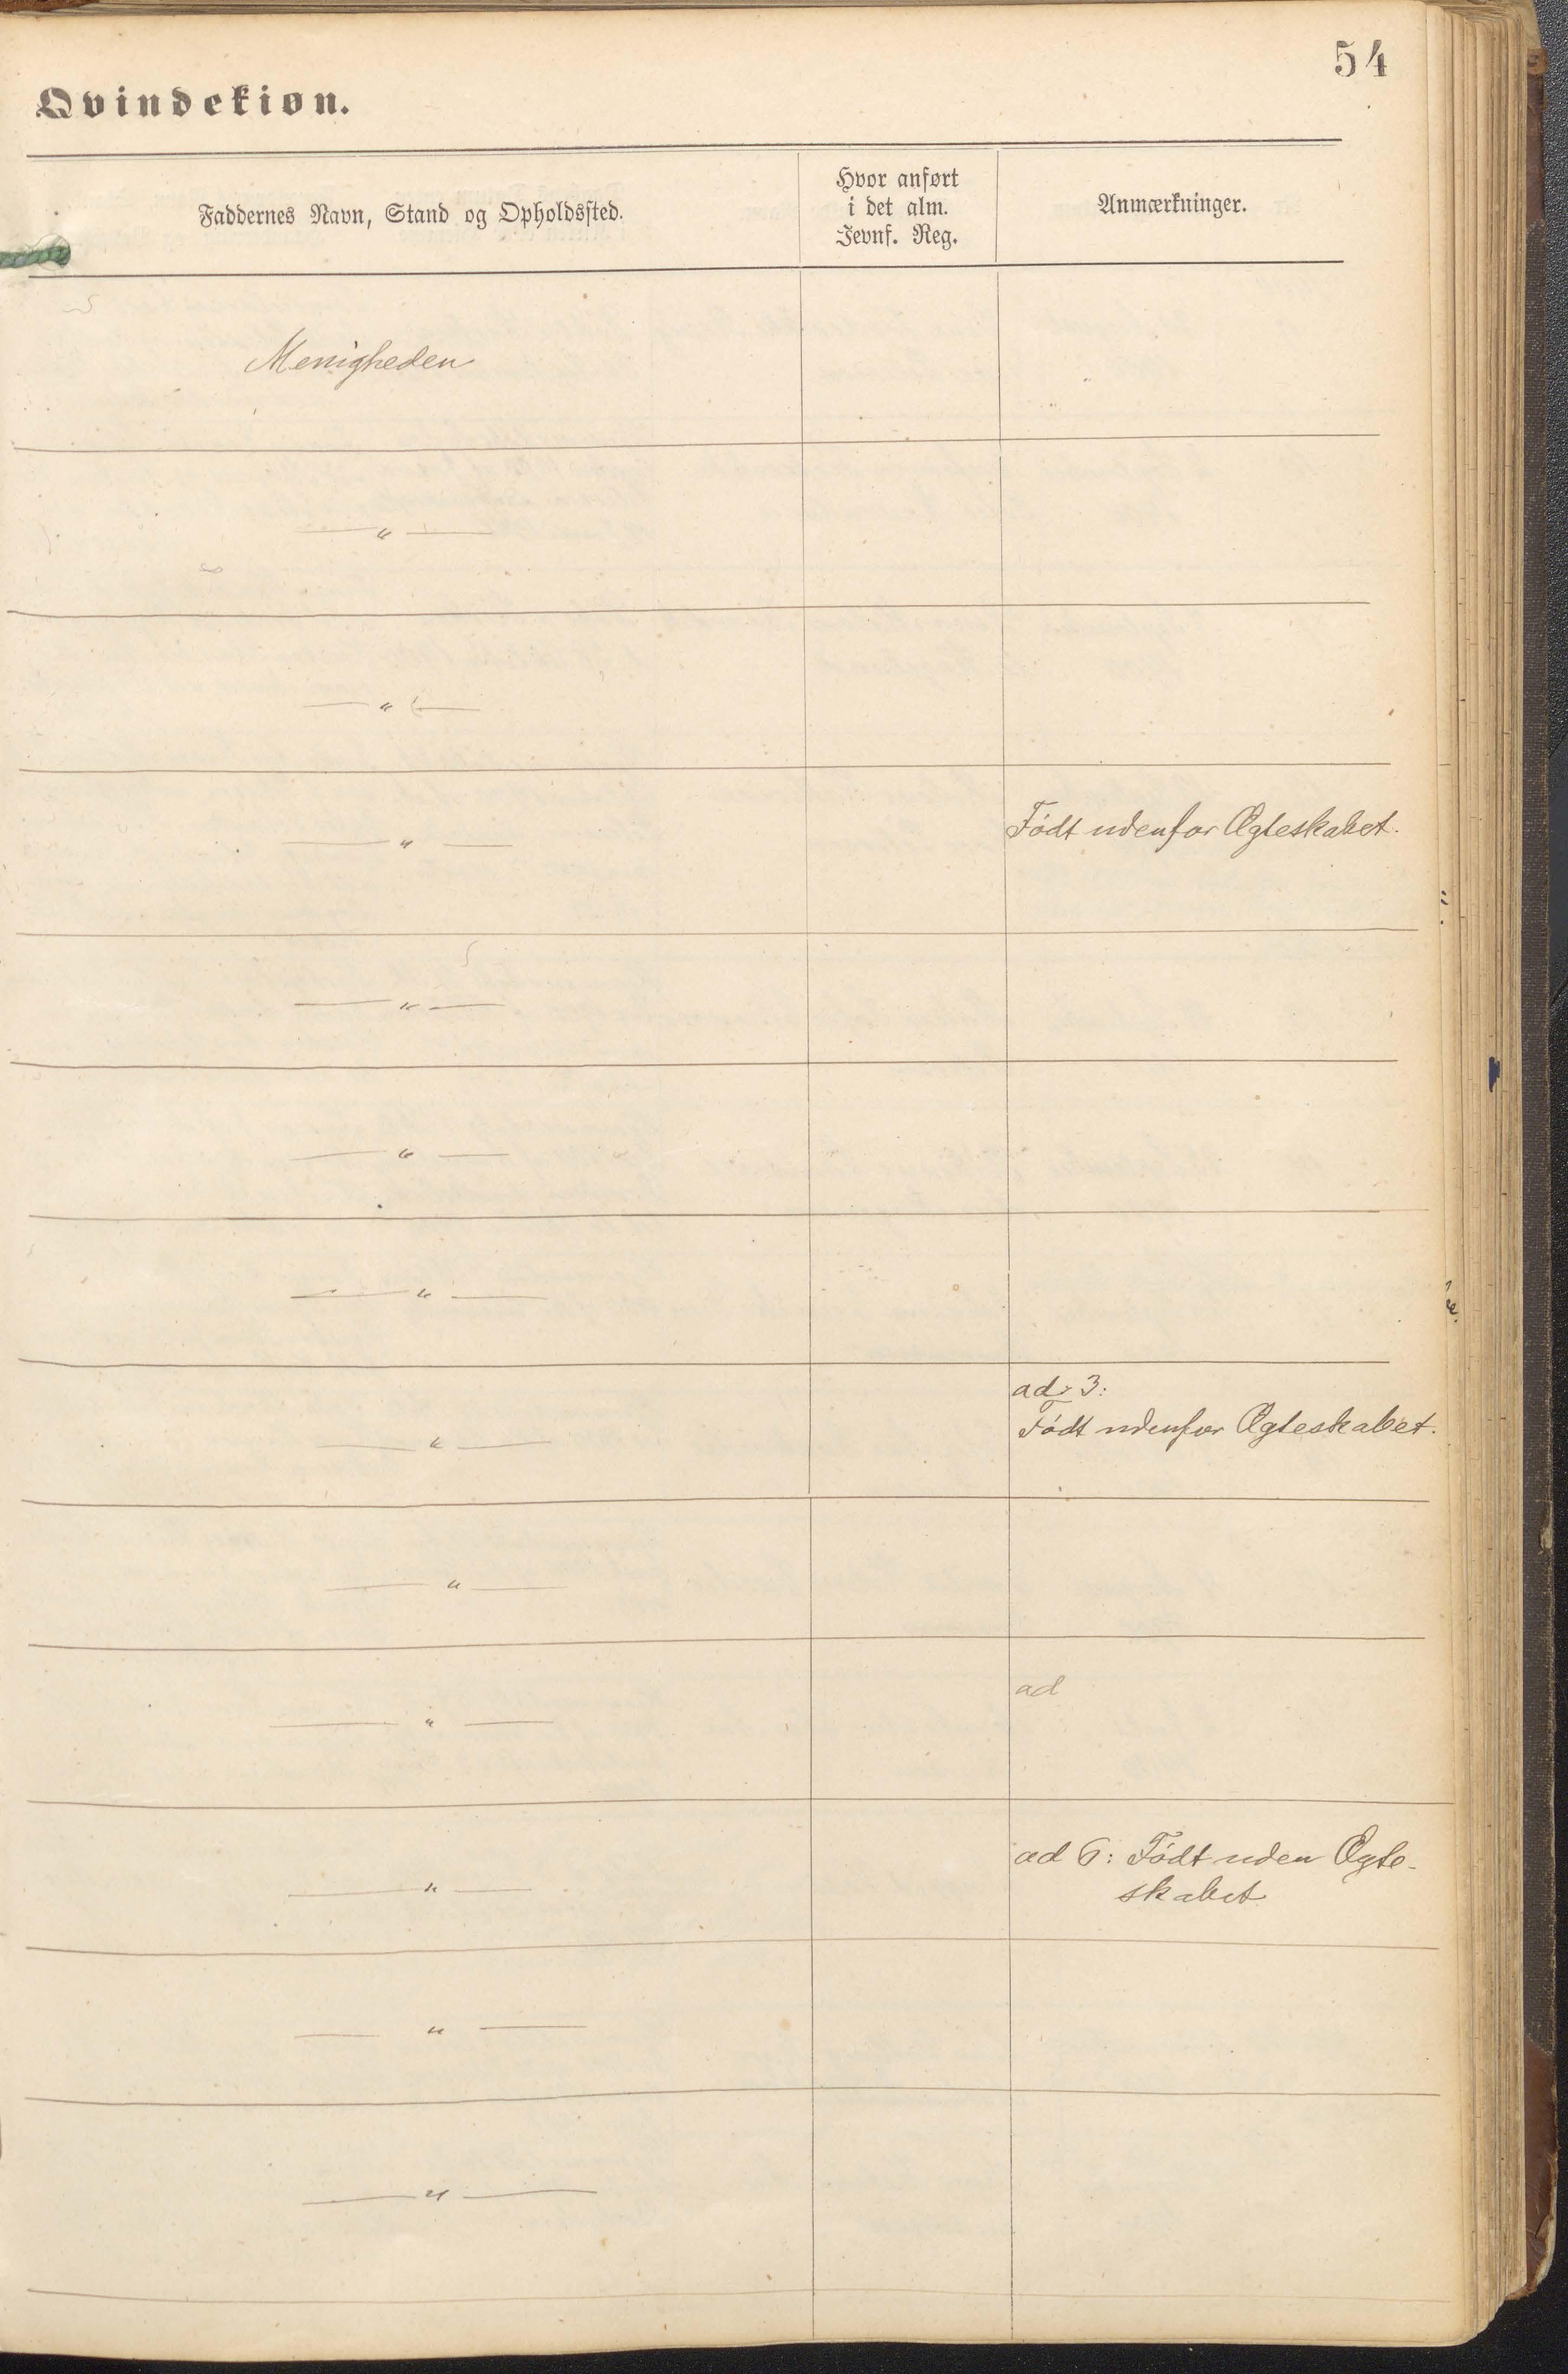 54
Qvindekiøn.
Faddernes Navn, Stand og Opholdssted.
Hvor anført
i det alm.
Jevnf. Reg.
Anmærkninger.
Menigheden
— " —
— " —
— " —
Født udenfor Ægteskabet.
— " —
— " —
— " —
ad 3:
Født udenfor Ægteskabet.
— " —
— " —
ad
— " —
ad 6: Født uden Ægte-
skabet
— " —
— " —
— " —